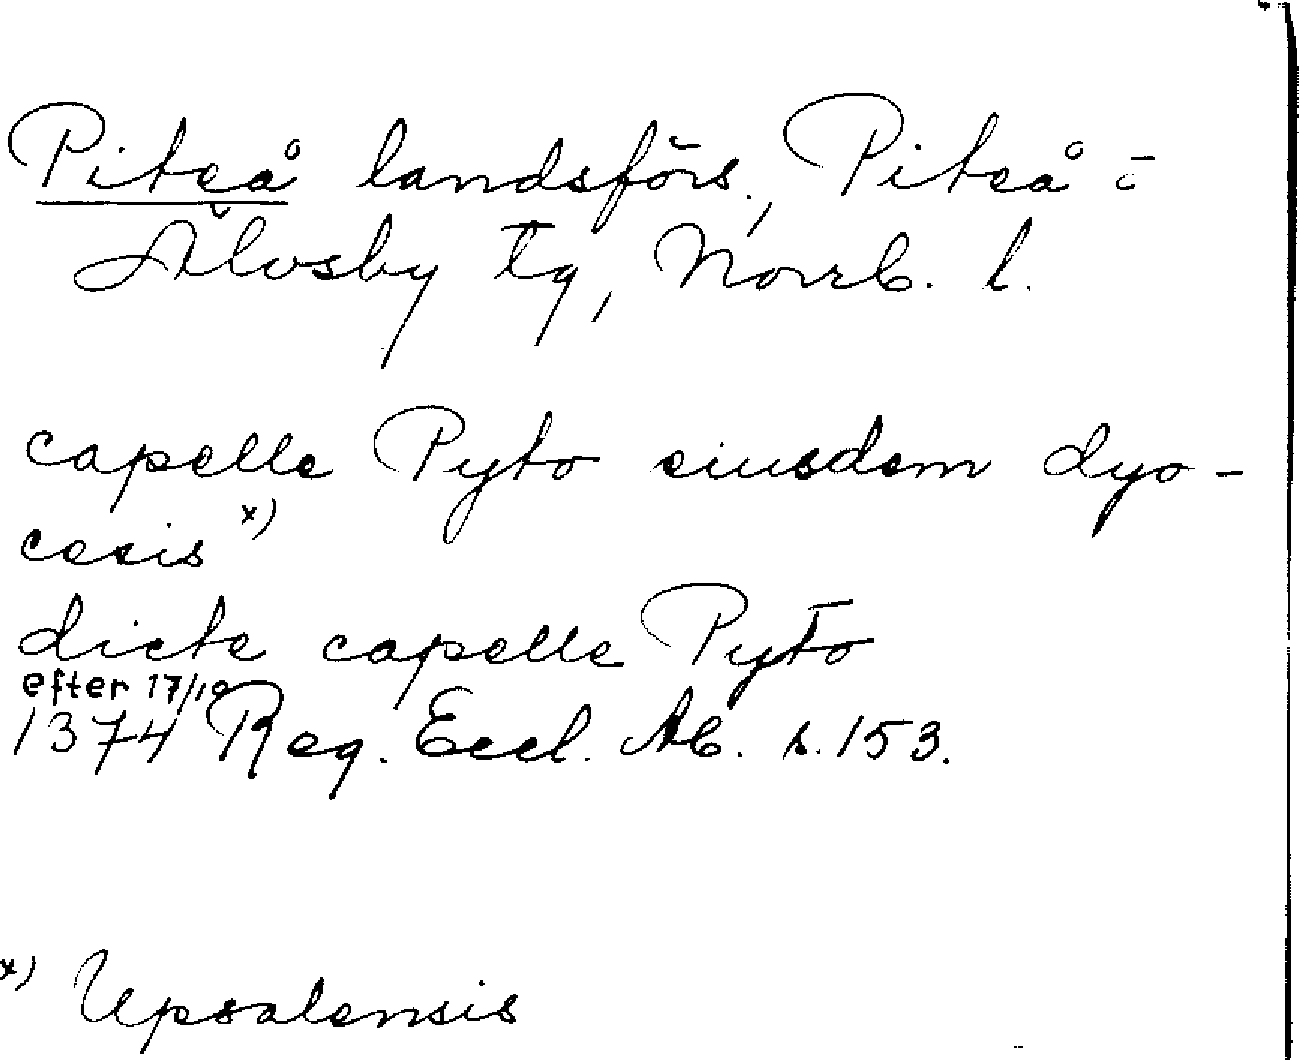 Piteå landsförs., Piteå-
Älvsby tg, Norrb. l.
capelle Pyto eiusdem dyo-
cesis x)
dicte capelle Pyto
efter 17/10
1374 Reg. Eccl. Ab. s. 153.
x) Upsalensis